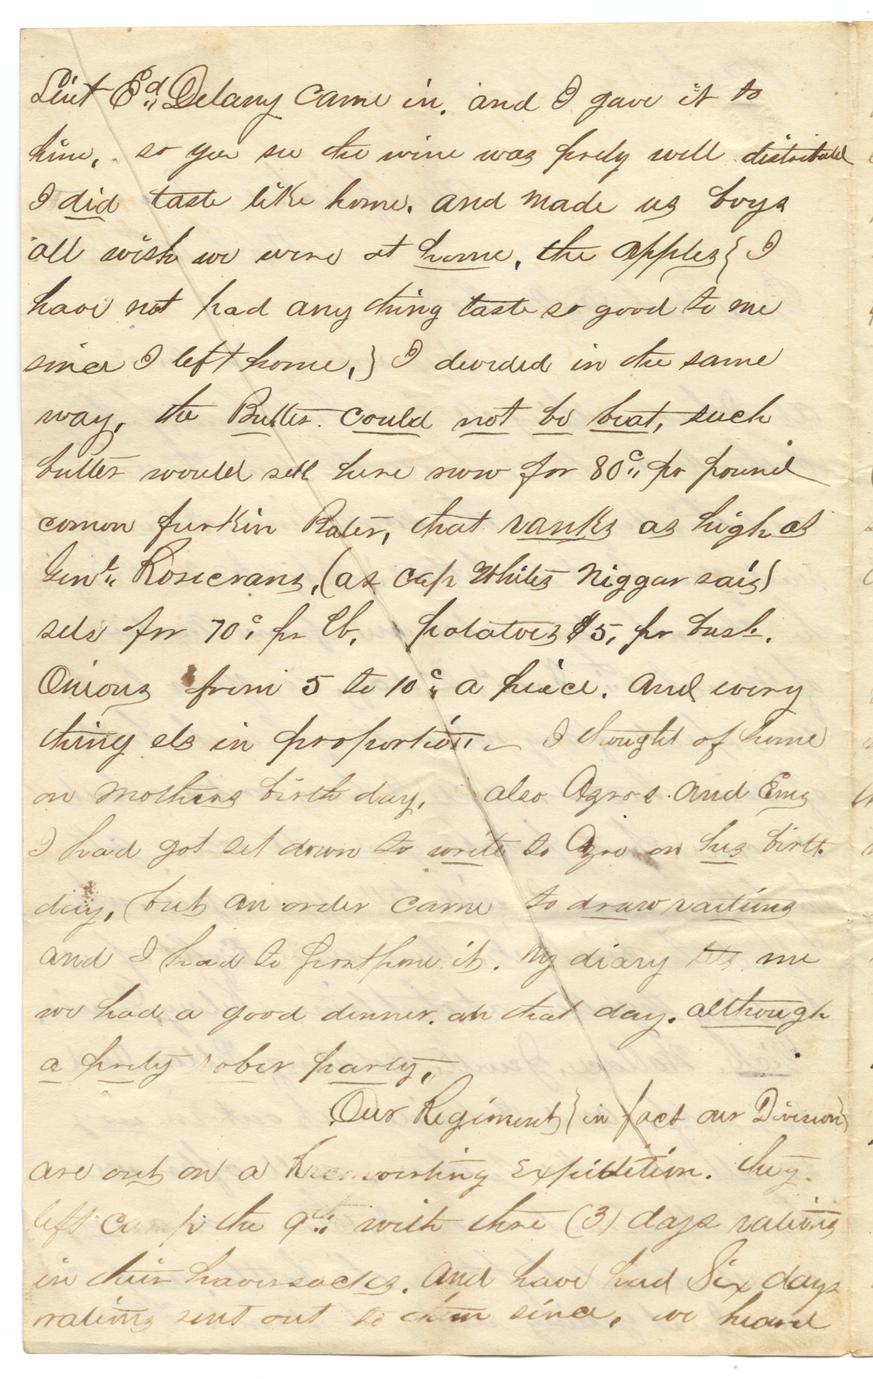 Liut Ed,, Delany came in. and I gave it to
him, so you see the wine was prety well distributed
I did taste like home. and made us boys
all wish we were at home, the apples { I
have not had any thing taste so good to me
since I left home, } I devided in the same
way, the Butter could not be beat, such
butter would sell here now for 80c,, pr pound
comon furkin Buter, that ranks as high as
Genl,, Rosecrans, (as cap Whites Niggar said)
sels for 70c pr lb, potatoes $5, pr bush.
Onions from 5 to 10c,, a piece. and every
thing els in proportion I thought of home
on mothers birth day, also Agros. and Ems
I had got set down to write to Agro on his birth
day, (but an order came to draw rations
and I had to postpone it. My diary tells me
we had a good dinner. on that day. although
a prety sober party,
Our Regiment { in fact our Division }
are out on a Reconoitring Expidition. they
left camp the 9th,, with thre (3) days rations
in their haversacks. and have had Six days
rations sent out to them since, we heard